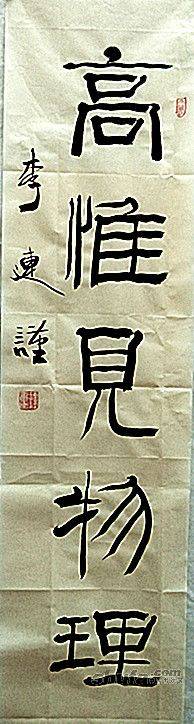 高惟見物理
李連謹